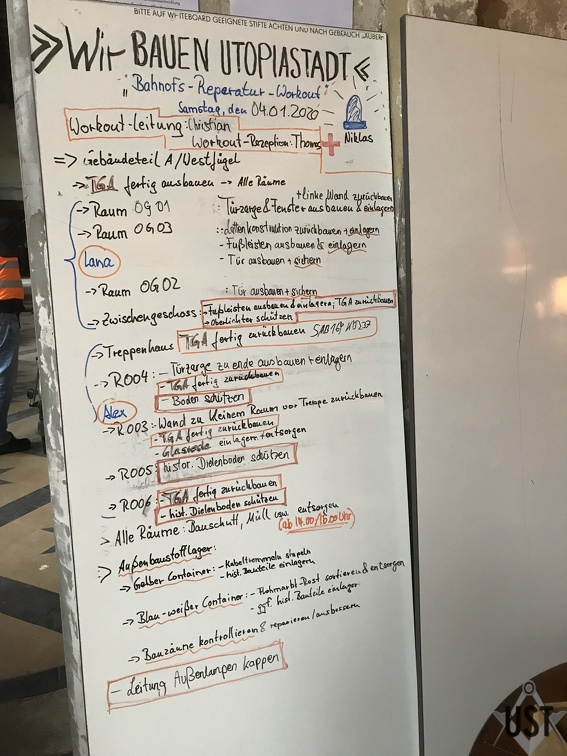 BITTE AUF WHITEBOARD GEEIGNETE STIFTE ACHTEN UND NACH GEBRAUCH
Wir BAUEN UTOPIASTADT
"Bahnofs-Reparatur-Workout"
Samstag, den 04.01.2020
Workout-Leitung: Christian
Niklas
Workout-Rezeption: Thomas
=> Gebäudeteil A/Westflügel
-> TGA fertig ausbauen -> Alle Räume
+ linke Wand zurückbauen
-> Raum OG01 : Türzarge & Fenster ausbauen & einlagern
-> Raum OG03 : Lattenkonstruktion zurückbauen + einlagern
- Fußleisten ausbauen & einlagern
Lana
- Tür ausbauen + sichern
-> Raum OG02 : Tür ausbauen + sichern
-> Zwischengeschoss: - Fußleisten ausbauen & einlagern; TGA zurückbauen
- Oberlichter schützen
-> Treppenhaus TGA fertig zurückbauen
-> R004: - Türzarge zu ende ausbauen + einlagern
- TGA fertig zurückbauen
- Boden schützen
Alex
-> R003: - Wand zu kleinem Raum vor Treppe zurückbauen
- TGA fertig zurückbauen
- einlagern + entsorgen
-> R005: histor. Dielenboden schützen
-> R006: - TGA fertig zurückbauen
- hist. Dielenboden schützen
> Alle Räume: Bauschutt, Müll usw. entsorgen
(ab 14.00/15.00 Uhr)
> Außenbaustofflager:
-> Gelber Container: - Kabeltrommeln stapeln
- hist. Bauteile einlagern
-> Blau-weißer Container: - Flohmarkt-Rest sortieren & entsorgen
- ggf. hist. Bauteile einlagern
-> Bauzäune kontrollieren & reparieren/ausbessern
- Leitung Außenlampen kappen
UST